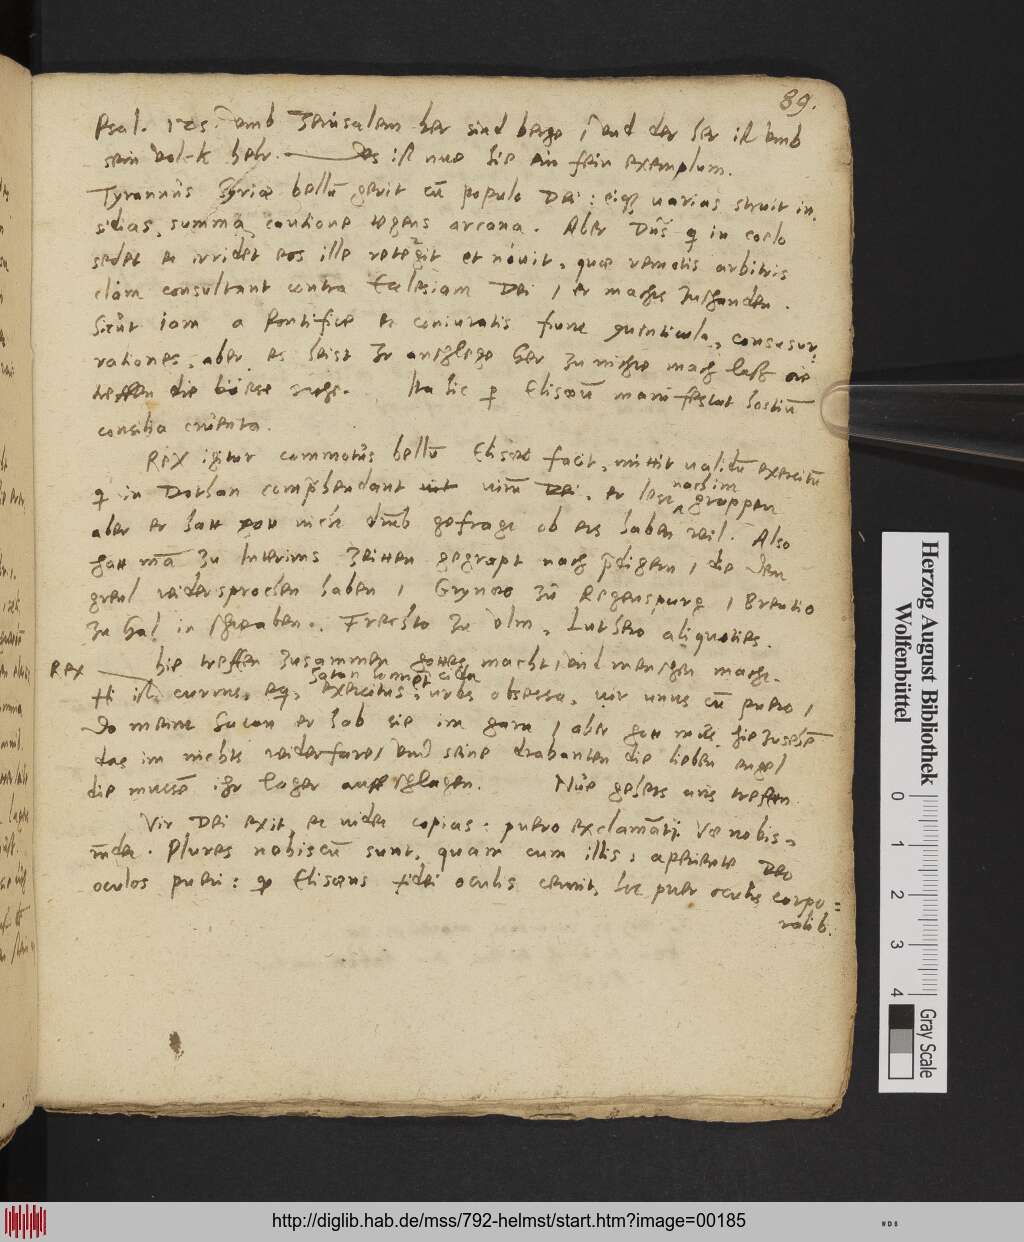 89.
Psal. 125. umb Jerusalem her sind berge / und der her ist umb
sein volck hehr. Des ist nue hie ein fein exemplum.
Tyrannus Syriae bellū gerit cū populo Dei: eiq; varias struit in
sidias, summa cautione tegens arcana. Aber Dn̄s q̄ in coelo
sedet et irridet eos ille retegit et novit, quae remotis arbitris
clam consultant contra Ecclesiam Dei / er machts zuschanden.
Sicut iam a Pontifice et coniuratis fiunt conventicula, consusur=
rationes, aber es heist Ir anschlege her zu nichte mach laß sie
treffen die böese sache. Ita hic p Elisaeū manifestat hostiū
consilia cruenta.
Rex igitur commotus bellū Elisaeo facit, mittit validū exercitū
q̄ in Dothan comp̄hendant virū Dei, er lest nach im grappen
aber er hatt gott nicht drūb gefragt ob ers haben wil. Also
hatt mā zu Interims zeitten gegrapt nach p̄digern / die dem
greul widersprochen haben / Grynaeo zu Regenspurg / Brentio
zu Hal in schwaben. Frechto zu Ulm, Luthero aliquoties.
Rex hie treffen zusammen gottes macht und menschen macht.
Satan homo et cista
H ist currus, eq, exercitus, urbs obsessa, vir unus cū puero /
Do meint Satan er hab sie im garn / aber gott mus hie zusehē
das im nichts widerfare / und seine drabanten die lieben engel
die mussē ihr lager auff schlagen. Nue gehets ans treffen.
Vir Dei exit, et videt copias: puero exclamāti Vae nobis,
r̄ndet. Plures nobiscū sunt, quam cum illis, aperiente Deo
oculos pueri: q Elisaeus fidei oculis cernit, hic puer oculis corpo=
ralib.
Herzog August Bibliothek
Wolfenbüttel
0 1 2 3 4
Gray Scale
http://diglib.hab.de/mss/792-helmst/start.htm?image=00185